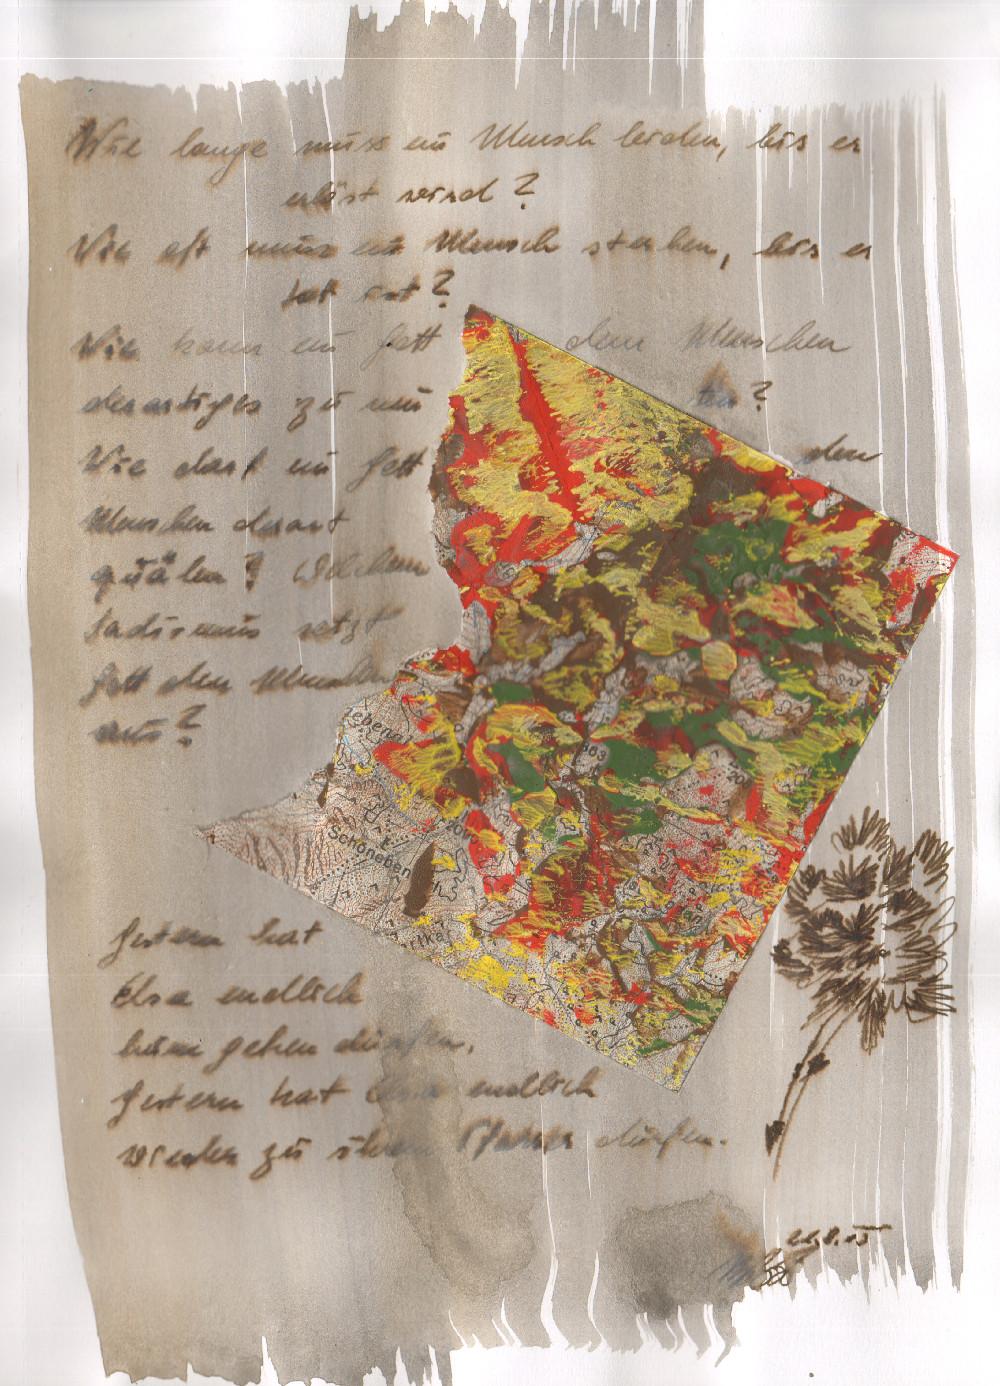 Wie lange muss ein Mensch leiden, bis er
erlöst wird?
Wie oft muss ein Mensch sterben, bis er
tot ist?
Wie kann ein Gott dem Menschen
derartiges zu mu ten?
Wie darf ein Gott den
Menschen derart
quälen? Welchem
Sadismus setzt
Gott den Menschen
aus?
ebena
363
20
Schöneben
Gestern hat
Elsa endlich
heim gehen dürfen.
Gestern hat Elsa endlich
wieder zu ihrem dürfen.